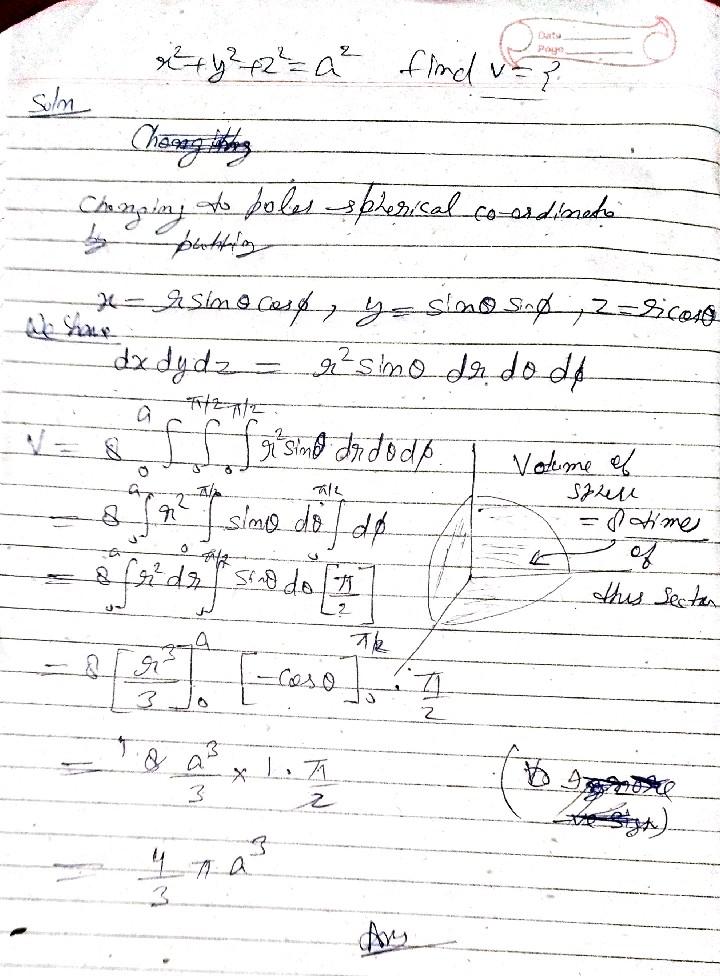 Date
Page
x²+y²+z²=a² find v=?
Soln
Changing to polar spherical co-ordinate
by putting
x = r sinθ cosφ, y = sinθ sinφ, z = r cosθ
We have
dx dy dz = r² sinθ dr dθ dφ
V = 8 ∫₀^a ∫₀^π/2 ∫₀^π/2 r² sinθ dr dθ dφ
= 8 ∫₀^a r² ∫₀^π/2 sinθ dθ ∫₀^π/2 dφ
= 8 ∫₀^a r² dr ∫₀^π/2 sinθ dθ [π/2]
= 8 [r³/3]₀^a [-cosθ]₀^π/2 · π/2
= 8 a³/3 × 1 · π/2
= 4/3 π a³
Ans
Volume of
sphere
= 8 times
of
this sector